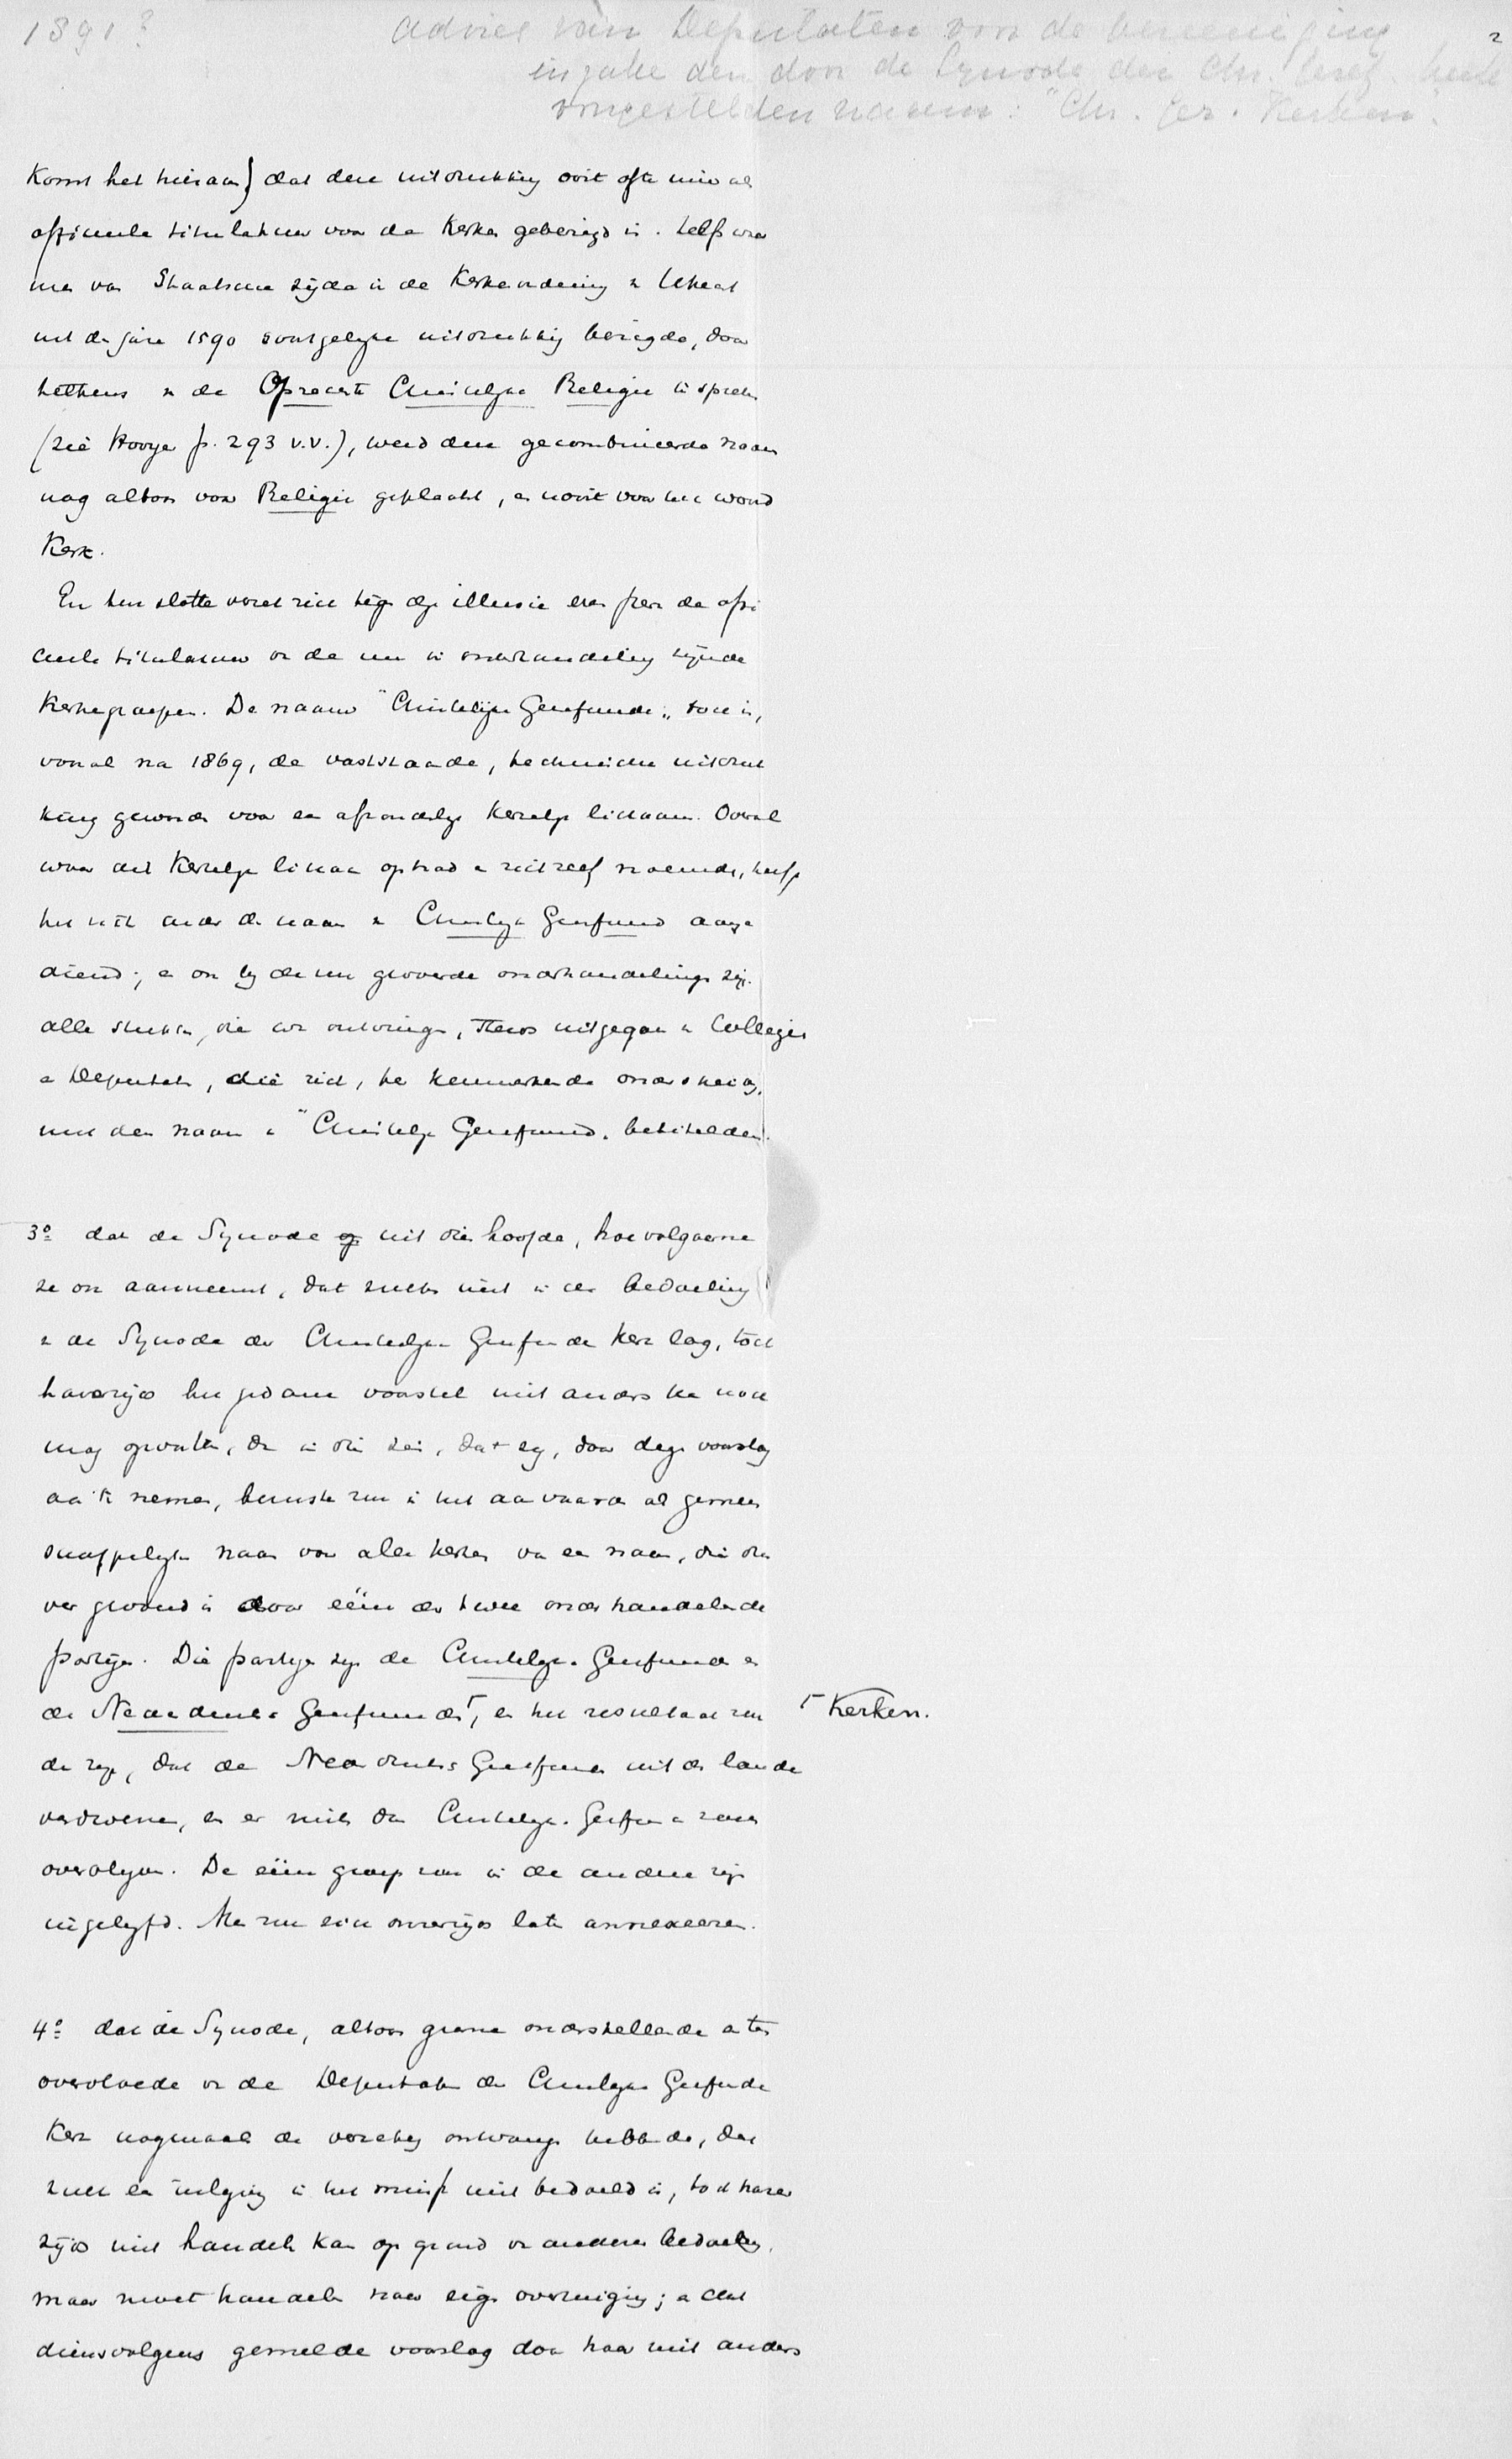 1891?
Advies van Deputaten voor de vereeniging
inzake den door de Synode der Chr. Geref. Kerk
voorgestelden naam: "Chr. Ger. Kerken".
2
Komt het hieraan} dat deze uitdrukking ooit ofte nimmer als
officieele titulatuur voor de Kerken gebezigd is. Zelfs waar
men van Staatsche zijde in de Kerkenordening v. Utrecht
uit den jare 1590 soortgelijke uitdrukking bezigde, door
telkens v. de Oprecte Christelijke Religie te spreken
(zie Hooyer p. 293 v.v.), werd deze gecombineerde naam
nog altoos voor Religie geplaatst, en nooit voor het woord
Kerk.
En ten slotte verzet zich tegen deze illusie even zeer de offi
cieele titulatuur v. de nu in onderhandeling zijnde
Kerkegroepen. De naam "Christelijke Gereformeerde" toch is,
vooral na 1869, de vaststaande, technische uitdruk
king geworden voor een afzonderlijk Kerkelijk lichaam. Overal
waar dit Kerkelijk lichaam optrad en zichzelf noemde, heeft
het zich onder den naam v. Christelijke Gereformeerd aange
diend; en ook bij de nu gevoerde onderhandelingen zijn
alle stukken, die we ontvingen, steeds uitgegaan v. Collegies
en Deputaten, die zich, ter kenmerkende onderscheiding,
met den naam v. "Christelijke Gereformeerd" betitelden.
3o dat de Synode uit dien hoofde, hoe volgaarne
ze ook aanneemt, dat zulks niet in de bedoeling
v. de Synode der Christelijke Gereformeerde Kerk lag, toch
harerzijds het gedane voorstel niet anders kan noch
mag opvatten, dan in dien zin, dat zij, door dezen voorslag
aan te nemen, berusten zou in het aanvaarden als gemeen
schappelijken naam voor alle kerken van een naam, die dus
ver gevoerd is door één der twee onderhandelende
partijen. Die partijen zijn de Christelijke Gereformeerde en
de Nederduitse Gereformeerde⌈, en het resultaat zou
⌈ Kerken.
dan zijn, dat de Nederduitse Gereformeerde uit den lande
verdwenen, en er niets dan Christelijke Gereformeerde zouden
overblijven. De ééne groep zou in de andere zijn
ingelijfd. Men zou zich onzerzijds laten annexeeren.
4o dat de Synode, altoos gaarne onderstellende en ten
overvloede v. de Deputaten der Christelijke Gereformeerde
Kerk nogmaals de verzekering ontvangen hebbende, dat
zulk een inlijving in het minst niet bedoeld is, toch harer
zijds niet handelen kan op grond v. anderer bedoeling,
maar moet handelen naar eigen overtuiging; en dat
diensvolgens gemelde voorslag door haar niet anders